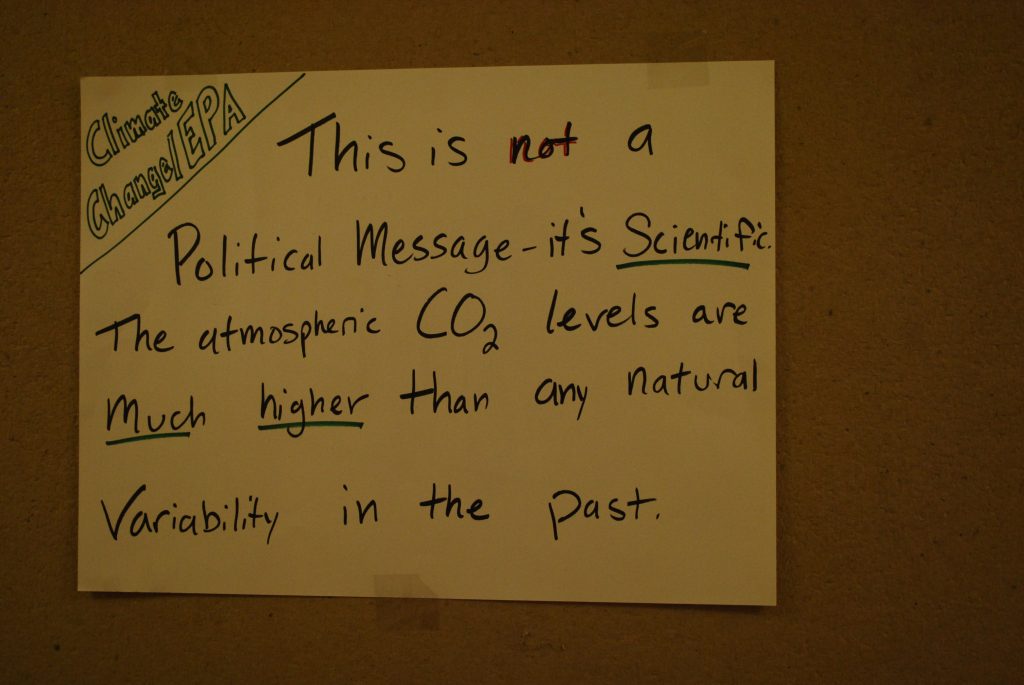 Climate
Change/EPA
This is not a
Political Message - it's Scientific.
The atmospheric CO₂ levels are
Much higher than any natural
Variability in the past.